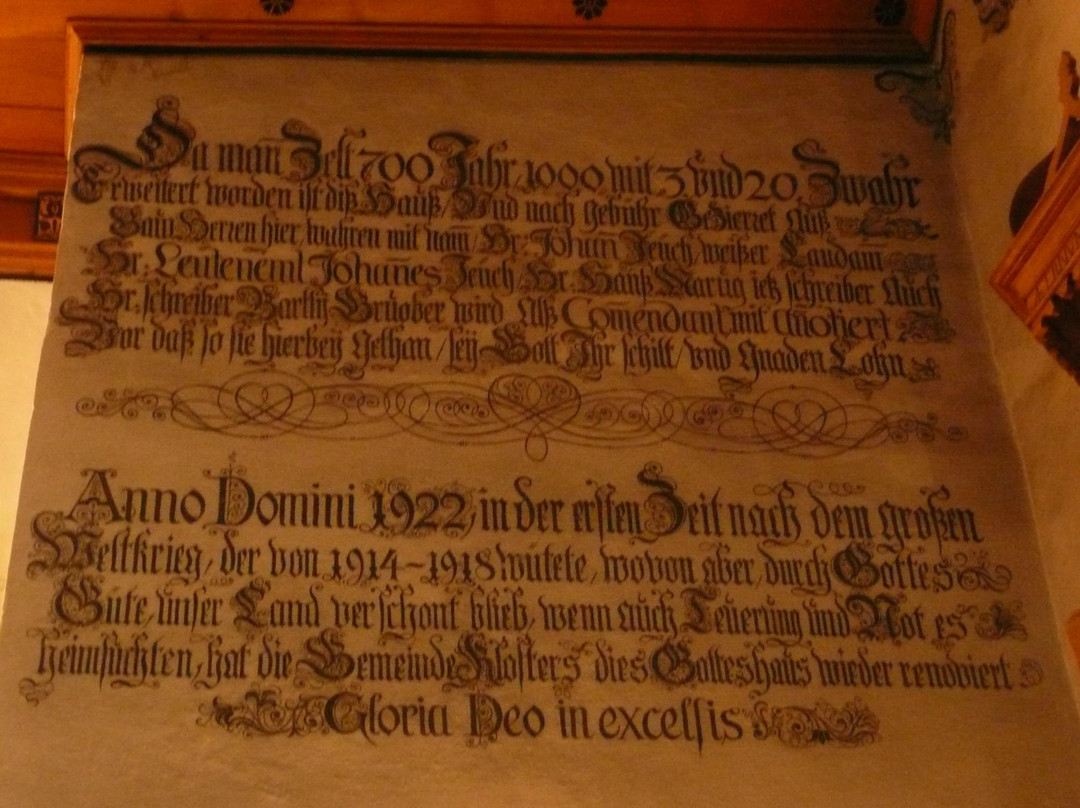 Da man̄ Zelt 700 Jahr, 1000 mit 3 Vnd 20 Zwahr
Erweitert worden ist diß Hauß/ Vnd nach gebühr Gezieret Auß
Bauw Herren hier, wahren mit nam̄/ Hr: Johan Jeuch, weißer Landam̄
Hr: Leutenemt Johan̄es Jeuch, Hr: Hanß Marug ietz schreiber Auch
Hr: schreiber Barthly Brüober wird Alß Com̄endant mit
Vor daß so sie hierbey gethan/ sey Gott Ihr schilt/ vnd Gnaden Lohn
Anno Domini 1922, in der ersten Zeit nach dem großen
Weltkrieg, der von 1914–1918 wütete, wovon aber, durch Gottes
Güte, unser Land verschont blieb, wenn auch Teuerung und Not es
heimsuchten, hat die Gemeinde Klosters dies Gotteshaus wieder renoviert
Gloria Deo in excelsis